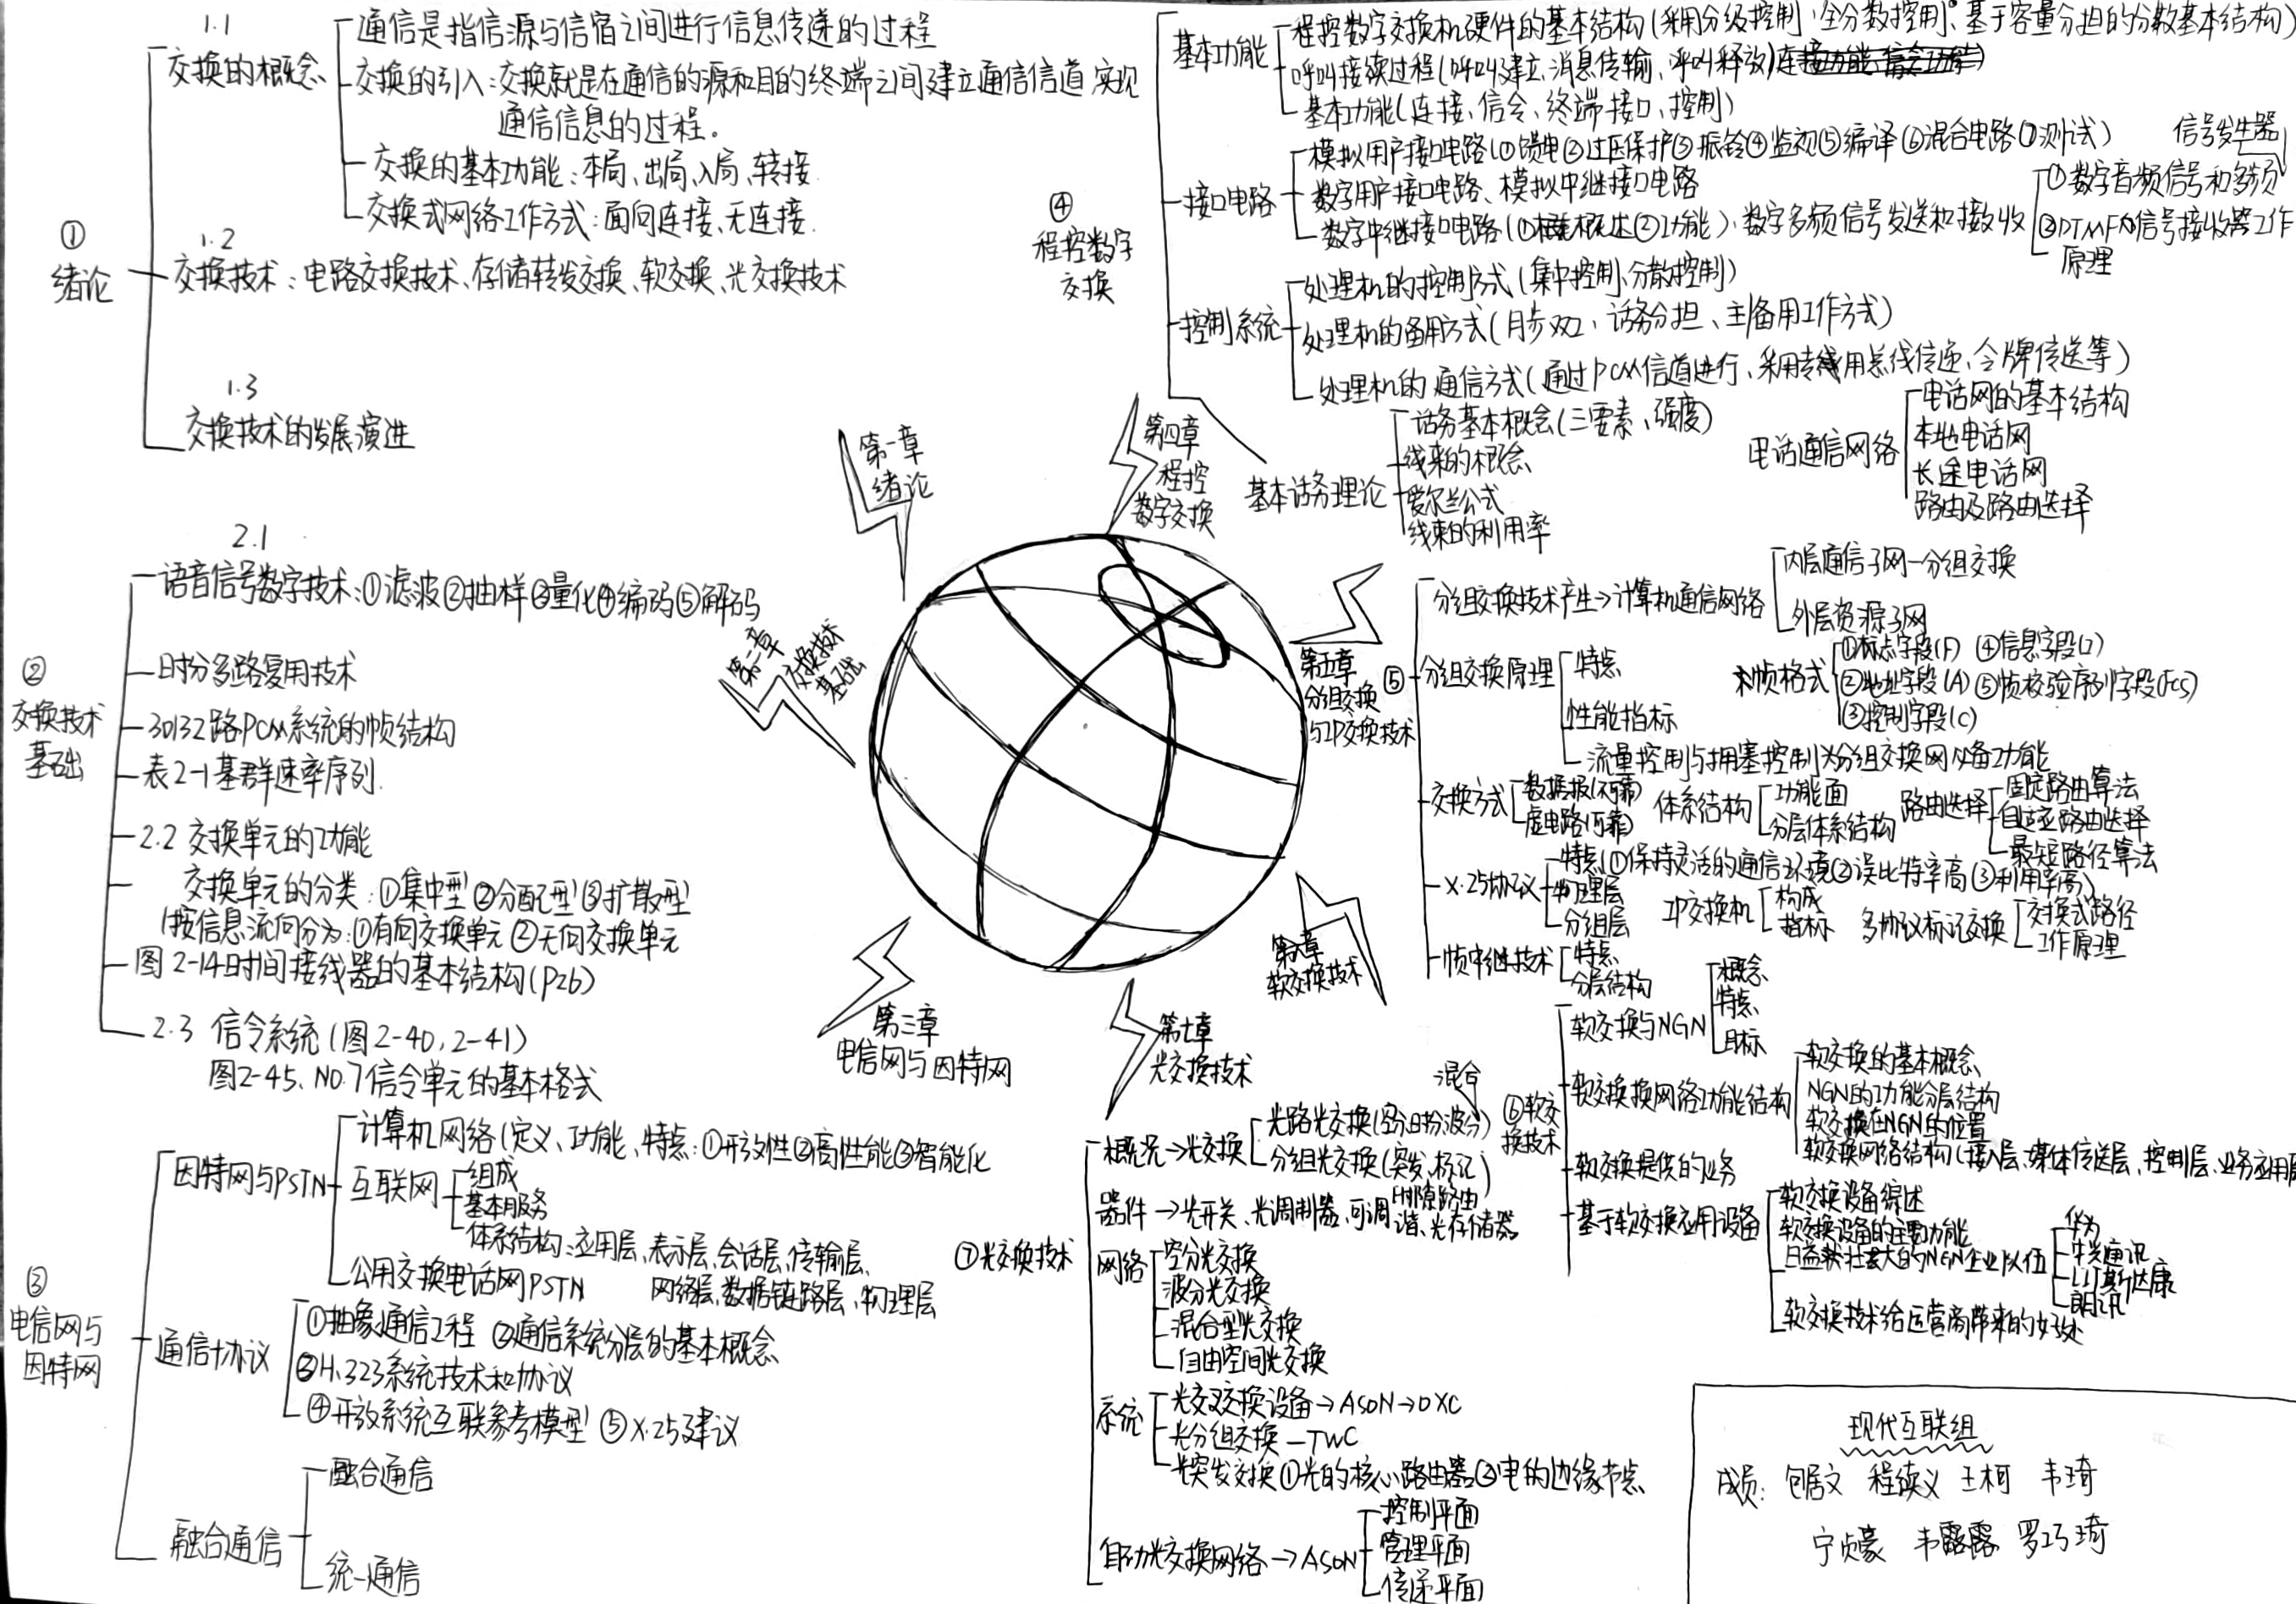 1.1
交换的概念
通信是指信源与信宿之间进行信息传递的过程
交换的引入:交换就是在通信的源和目的终端之间建立通信信道,实现
通信信息的过程。
交换的基本功能:本局、出局、入局、转接
交换式网络工作方式:面向连接、无连接.
①
绪论
1.2
交换技术:电路交换技术、存储转发交换、软交换、光交换技术
1.3
交换技术的发展演进
2.1
语音信号数字技术:①滤波②抽样③量化④编码⑤解码
时分多路复用技术
②
交换技术
基础
30132路PCM系统的帧结构
表2-1基群速率序列.
2.2 交换单元的功能
交换单元的分类:①集中型②分配型③扩散型
(按信息流向分为:①有向交换单元②无向交换单元
图2-14时间接线器的基本结构(P26)
2.3 信令系统(图2-40,2-41)
图2-45、NO.7信令单元的基本格式
③
电信网与
因特网
因特网与PSTN
计算机网络(定义、功能、特点:①开放性②高性能③智能化
互联网
组成
基本服务
体系结构:应用层、表示层、会话层、传输层、
网络层、数据链路层、物理层
公用交换电话网PSTN
通信协议
①抽象通信工程 ②通信系统分层的基本概念
③H.323系统技术和协议
④开放系统互联参考模型 ⑤X.25建议
融合通信
融合通信
统一通信
第一章
绪论
第二章
交换技术
基础
第三章
电信网与因特网
第四章
程控
数字交换
第五章
分组交换
与IP交换技术
第六章
软交换技术
第七章
光交换技术
④
程控数字
交换
基本功能
程控数字交换机硬件的基本结构(采用分级控制、全分数控制、基于容量分担的分散基本结构)
呼叫接续过程(呼叫建立、消息传输、呼叫释放)
基本功能(连接、信令、终端接口、控制)
接口电路
模拟用户接口电路(①馈电②过压保护③振铃④监视⑤编译⑥混合电路⑦测试)
数字用户接口电路、模拟中继接口电路
数字中继接口电路(①概述②功能)、数字多频信号发送和接收
信号发生器
①数字音频信号和多频
②DTMF的信号接收器工作
原理
控制系统
处理机的控制方式(集中控制、分散控制)
处理机的备用方式(同步双工、话务分担、主/备用工作方式)
处理机的通信方式(通过PCM信道进行、采用专用总线传递、令牌传送等)
基本话务理论
话务基本概念(三要素、强度)
线束的概念
爱尔兰公式
线束的利用率
电话通信网络
电话网的基本结构
本地电话网
长途电话网
路由及路由选择
⑤
分组交换技术产生→计算机通信网络
内层通信子网—分组交换
外层资源子网
分组交换原理
特点
性能指标
流量控制与拥塞控制为分组交换网必备功能
帧格式
①标志字段(F) ④信息字段(I)
②地址字段(A) ⑤帧校验序列字段(FCS)
③控制字段(C)
交换方式
数据报(不可靠)
虚电路(可靠)
体系结构
功能面
分层体系结构
路由选择
固定路由算法
自适应路由选择
最短路径算法
X.25协议
特点(①保持灵活的通信环境②误比特率高③利用率高)
物理层
分组层
IP交换机
构成
指标
多协议标记交换
交换式路径
工作原理
帧中继技术
特点
分层结构
⑥软交
换技术
软交换与NGN
概念
特点
目标
软交换换网络功能结构
软交换的基本概念
NGN的功能分层结构
软交换在NGN的位置
软交换网络结构(接入层、媒体传送层、控制层、业务应用层
软交换提供的业务
基于软交换应用设备
软交换设备综述
软交换设备的主要功能
日益壮大的NGN企业队伍
华为
中兴通讯
UT斯达康
朗讯
软交换技术给运营商带来的好处
⑦光交换技术
概况→光交换
混合
光路光交换(空分时分波分)
分组光交换(突发、标记)
器件→光开关、光调制器、可调谐、光存储器
网络
空分光交换
波分光交换
混合型光交换
自由空间光交换
系统
光交叉交换设备→ASON→OXC
光分组交换—TWC
光突发交换①光的核心路由器②电的边缘节点
自动光交换网络→ASON
控制平面
管理平面
传送平面
现代互联组
成员: 包居文 程续义 王柯 韦琦
宁贞豪 韦露露 罗巧琦